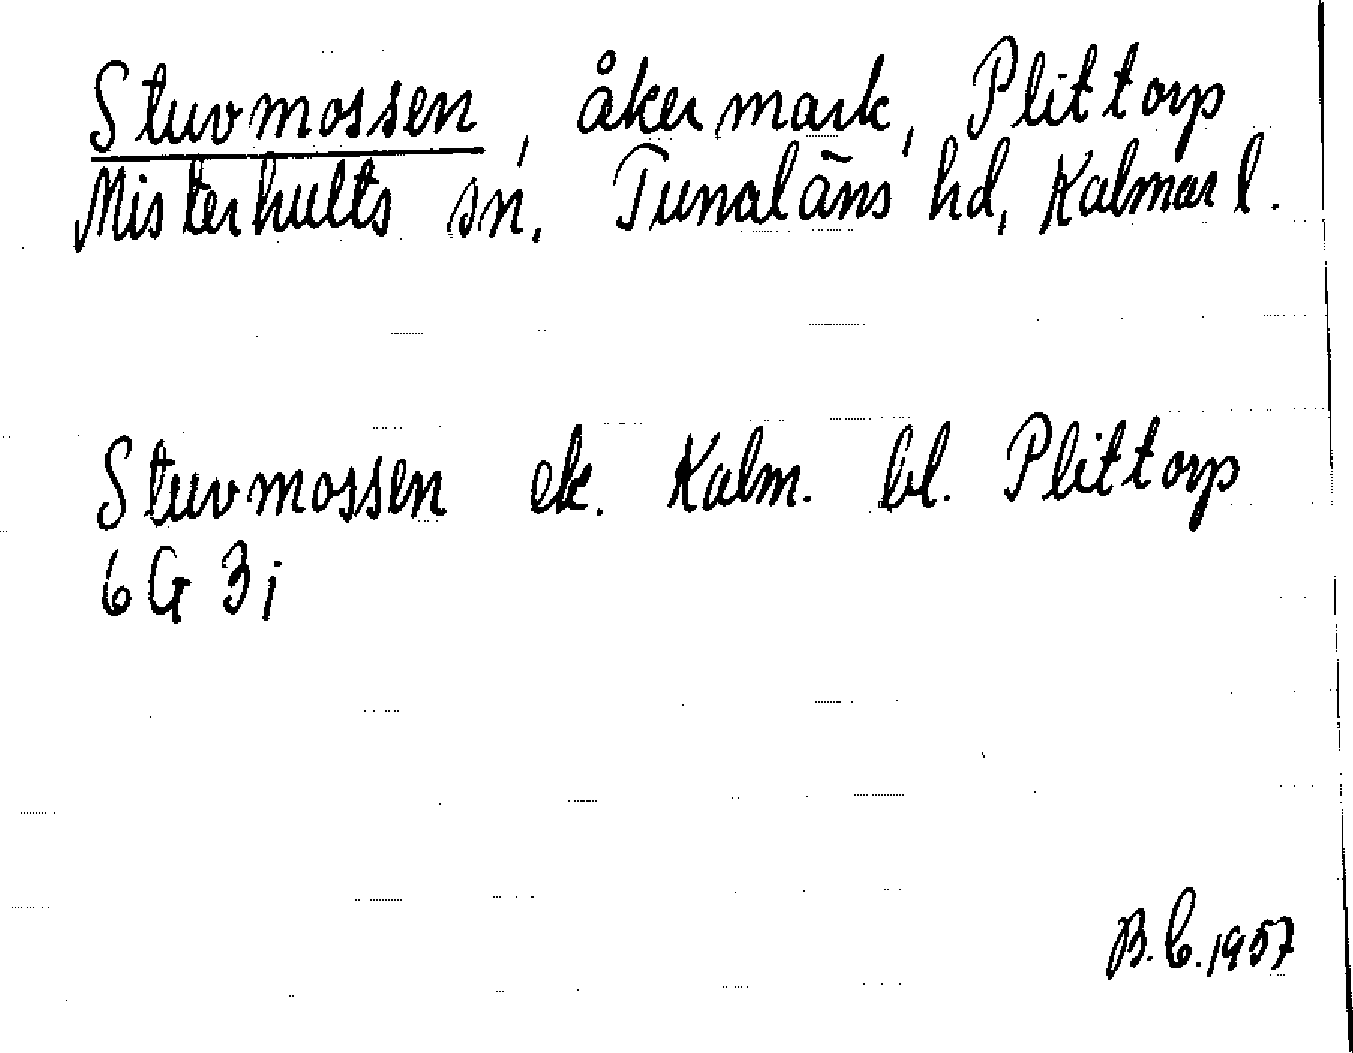 Stuvmossen, åkermark, Plittorp
Misterhults sn. Tunaläns hd, Kalmar l.
Stuvmossen ek. Kalm. bl. Plittorp
6 G 3i
B.C. 1957